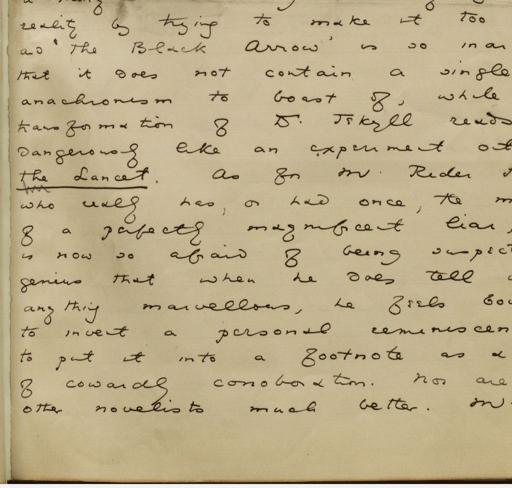 reality by trying to make it too
as 'the Black Arrow' is so inar
that it does not contain a single
anachronism to boast of, while
transformation of Dr. Jekyll reads
dangerously like an experiment out
the Lancet. As for Mr. Rider
who really has, or had once, the m
of a perfectly magnificent liar,
is now so afraid of being suspect
genius that when he does tell
anything marvellous, he feels bou
to invent a personal reminiscen
to put it into a footnote as a
of cowardly corroboration. Nor are
other novelists much better. Mr